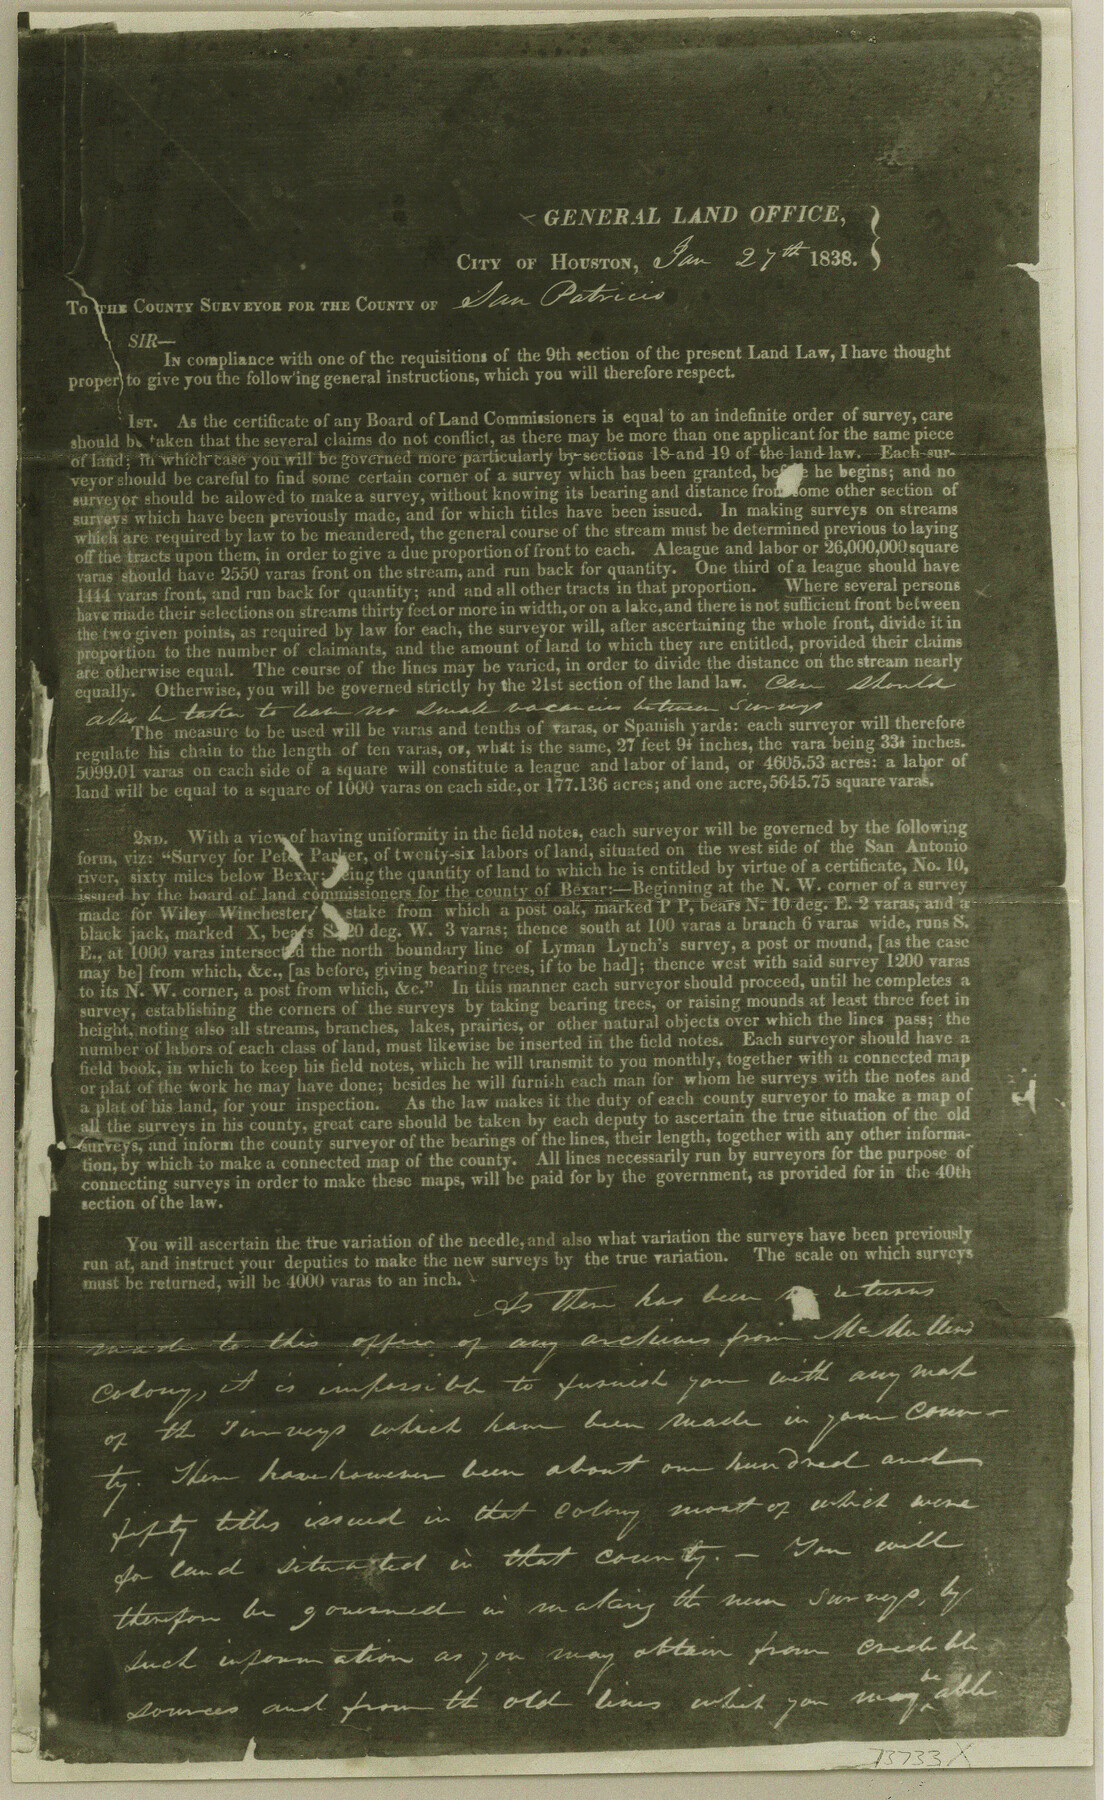 GENERAL LAND OFFICE,
CITY OF HOUSTON, Jan 27th 1838.
TO THE COUNTY SURVEYOR FOR THE COUNTY OF San Patricio
SIR—
IN compliance with one of the requisitions of the 9th section of the present Land Law, I have thought
proper to give you the follow'ing general instructions, which you will therefore respect.
1ST. As the certificate of any Board of Land Commissioners is equal to an indefinite order of survey, care
should be taken that the several claims do not conflict, as there may be more than one applicant for the same piece
of land; in which case you will be governed more particularly by sections 18 and 19 of the land law. Each sur-
veyor should be careful to find some certain corner of a survey which has been granted, before he begins; and no
surveyor should be allowed to make a survey, without knowing its bearing and distance from some other section of
surveys which have been previously made, and for which titles have been issued. In making surveys on streams
which are required by law to be meandered, the general course of the stream must be determined previous to laying
off the tracts upon them, in order to give a due proportion of front to each. A league and labor or 26,000,000 square
varas should have 2550 varas front on the stream, and run back for quantity. One third of a league should have
1444 varas front, and run back for quantity; and and all other tracts in that proportion. Where several persons
have made their selections on streams thirty feet or more in width, or on a lake, and there is not sufficient front between
the two given points, as required by law for each, the surveyor will, after ascertaining the whole front, divide it in
proportion to the number of claimants, and the amount of land to which they are entitled, provided their claims
are otherwise equal. The course of the lines may be varied, in order to divide the distance on the stream nearly
equally. Otherwise, you will be governed strictly by the 21st section of the land law. Care should
also be taken to leave no small vacancies between surveys
The measure to be used will be varas and tenths of varas, or Spanish yards: each surveyor will therefore
regulate his chain to the length of ten varas, or, what is the same, 27 feet 9⅓ inches, the vara being 33⅓ inches.
5099.01 varas on each side of a square will constitute a league and labor of land, or 4605.53 acres: a labor of
land will be equal to a square of 1000 varas on each side, or 177.136 acres; and one acre, 5645.75 square varas.
2ND. With a view of having uniformity in the field notes, each surveyor will be governed by the following
form, viz: "Survey for Peter Parker, of twenty-six labors of land, situated on the west side of the San Antonio
river, sixty miles below Bexar; being the quantity of land to which he is entitled by virtue of a certificate, No. 10,
issued by the board of land commissioners for the county of Bexar:—Beginning at the N. W. corner of a survey
made for Wiley Winchester, stake from which a post oak, marked P P, bears N. 10 deg. E. 2 varas, and a
black jack, marked X, bears S. 20 deg. W. 3 varas; thence south at 100 varas a branch 6 varas wide, runs S.
E., at 1000 varas intersected the north boundary line of Lyman Lynch's survey, a post or mound, [as the case
may be] from which, &c., [as before, giving bearing trees, if to be had]; thence west with said survey 1200 varas
to its N. W. corner, a post from which, &c." In this manner each surveyor should proceed, until he completes a
survey, establishing the corners of the surveys by taking bearing trees, or raising mounds at least three feet in
height, noting also all streams, branches, lakes, prairies, or other natural objects over which the lines pass; the
number of labors of each class of land, must likewise be inserted in the field notes. Each surveyor should have a
field book, in which to keep his field notes, which he will transmit to you monthly, together with a connected map
or plat of the work he may have done; besides he will furnish each man for whom he surveys with the notes and
a plat of his land, for your inspection. As the law makes it the duty of each county surveyor to make a map of
all the surveys in his county, great care should be taken by each deputy to ascertain the true situation of the old
surveys, and inform the county surveyor of the bearings of the lines, their length, together with any other informa-
tion, by which to make a connected map of the county. All lines necessarily run by surveyors for the purpose of
connecting surveys in order to make these maps, will be paid for by the government, as provided for in the 40th
section of the law.
You will ascertain the true variation of the needle, and also what variation the surveys have been previously
run at, and instruct your deputies to make the new surveys by the true variation. The scale on which surveys
must be returned, will be 4000 varas to an inch.
As there has been no returns
made to this office of any archives from McMullens
Colony, it is impossible to furnish you with any map
of the surveys which have been made in your coun-
ty. There have however been about one hundred and
fifty titles issued in that colony most of which were
for land situated in that county. — You will
therefore be governed in making the new surveys, by
such information as you may obtain from credible
sources and from the old lines which you may be able
73733X